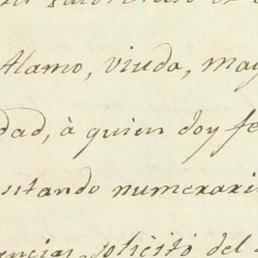 Alamo, viuda, may
dad, à quien doy fe
sitando numerari
encias, solicitó del